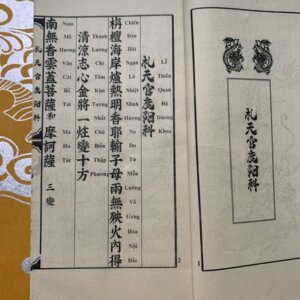 礼天官度陽科
1
礼天官度陽科
Lễ Thiên Quan Độ Dương Khoa
栴檀海岸爐熱明香耶輸子母兩無殃火內得
Chiên Đàn Hải Ngạn Lô Nhiệt Minh Hương Da Du Tử Mẫu Lưỡng Vô Ương Hỏa Nội Đắc
清涼志心金將一炷變十方
Thanh Lương Chí Tâm Kim Tương Nhất Chú Biến Thập Phương
南無香雲蓋菩薩和摩訶薩 三變
Nam Mô Hương Vân Cái Bồ Tát Ma Ha Tát
2